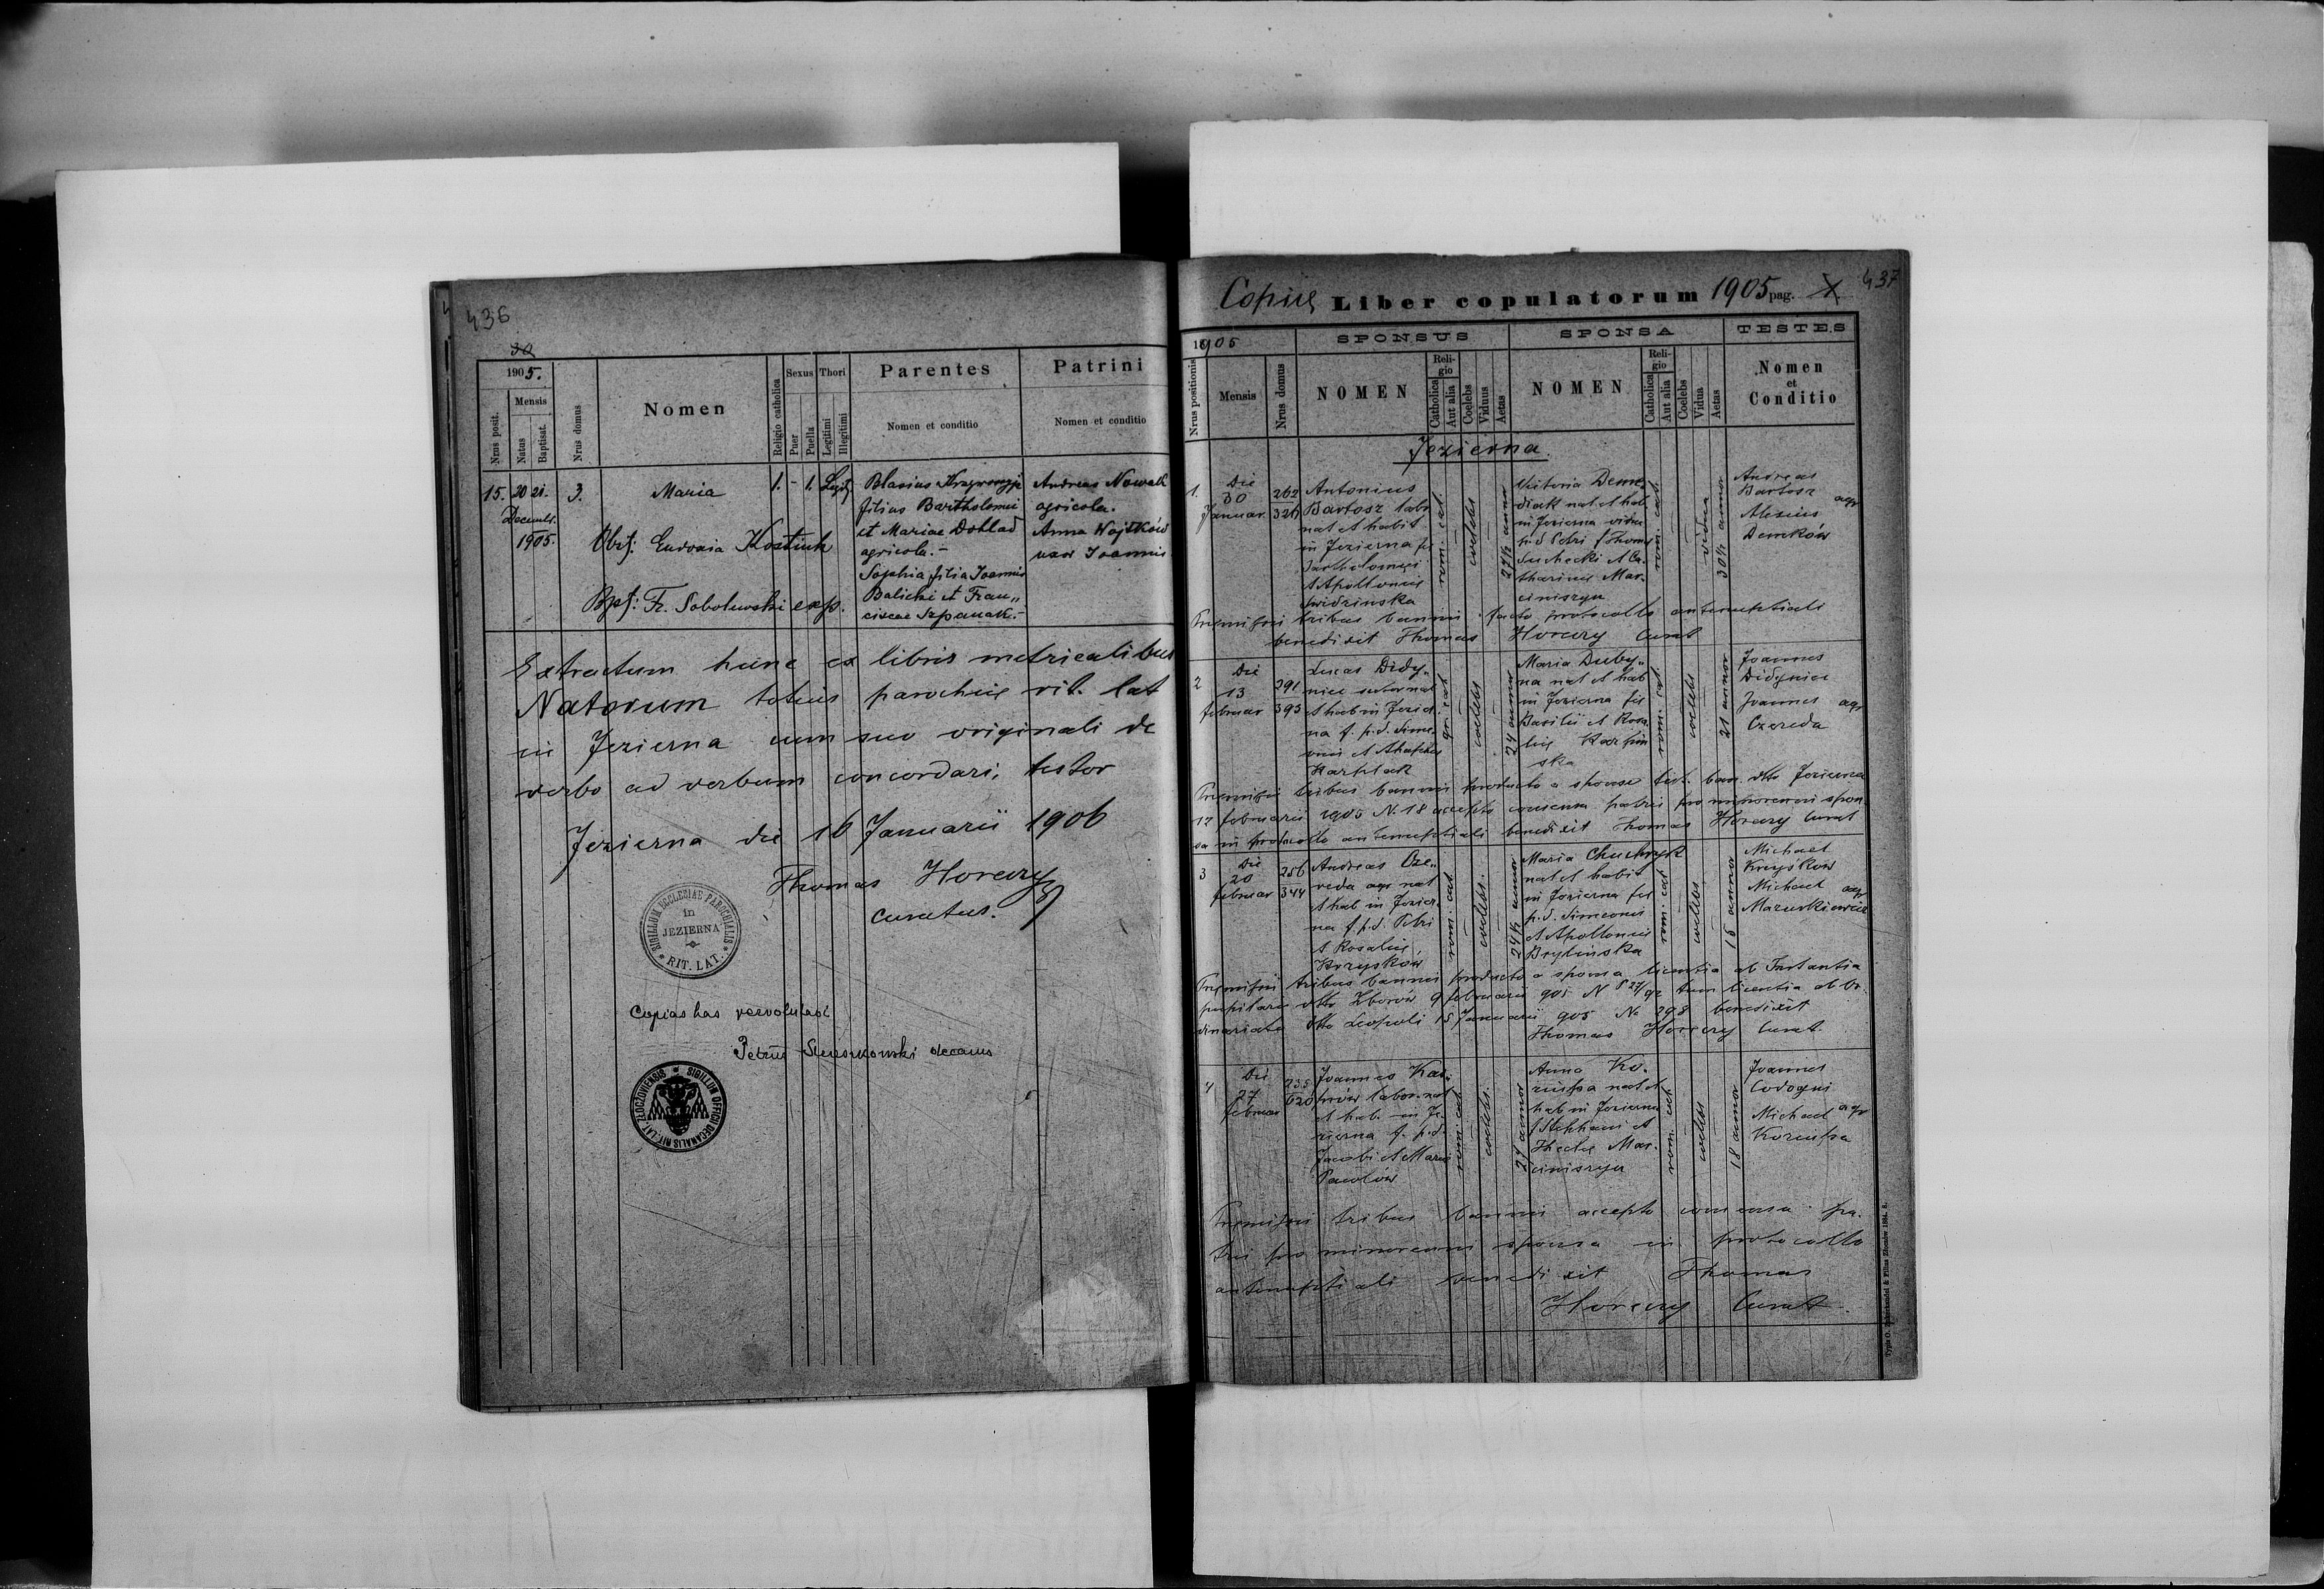 436
30
1905.
Nrus posit.
Mensis
Natus
Baptisat.
Nrus domus
Nomen
Religio catholica
Sexus
Puer
Puella
Thori
Legitimi
Illegitimi
Parentes
Nomen et conditio
Patrini
Nomen et conditio
15. 20 21. 3. Maria 1. - 1. Legit
Decemb.
1905.
Obst. Eudoxia Kostiuk
Bpt: Fr. Sobolewski exp.
Blasius
filius Bartholomei
et Mariae Dohlad
agricola.-
Sophia filia Joannis
Balicki et Fran„
ciscae Szpanak.-
Andreas Nowak
agricola.
Anna Wojtków
uxor Joannis
Extractum hunc ex libris metricalibus
Natorum totius parochię rit. lat
in Jezierna cum suo originali de
verbo ad verbum concordari, testor
Jezierna die 16 Januarii 1906
Thomas Horeczy
curatus.
SIGILLUM ECCLESIAE PAROCHIALIS
in
JEZIERNA
* RIT. LAT. *
Copias has
Petrus decanus
SIGILLUM OFFICI DECANALIS RIT. LAT. ZŁOCZOVIENSIS
437
Copiię Liber copulatorum 1905 pag. X
1905
SPONSUS
SPONSA
TESTES
Nrus positionis
Mensis
Nrus domus
NOMEN
Religio
Catholica
Aut alia
Coelebs
Viduus
Aetas
NOMEN
Religio
Catholica
Aut alia
Coelebs
Vidua
Aetas
Nomen
et
Conditio
Jezierna.
1. Die
30
Januar.
262
326
Antonius
Bartosz labo
nat et habit
in Jezierna fil
Bartholomęi
et Apollonię
Swidzinska
rom. cat.
coelebs
27½ anno
Victoria Deme„
diak nat et hab
in Jezierna vidua
p. d Petri f Thomę
Suchecki et Ca„
tharinę Mar„
ciniszyn
rom. cat.
vidua
30½ annor
Andreas
Bartosz agr
Alexius
Demków
Pręmissis tribus bannis facto protocollo antenuptiali
benedixit Thomas Horeczy Curat
2 Die
13
februar
291
393
Lucas Didy„
nice sutor nat
et hab in Jezier
na f. p. d. Sime„
onis et
Harhlak
gr. cat
coelebs
24 annor
Maria Duby„
na nat et hab
in Jezierna fil
Basilii et Rosa
lię Karpin
ska
rom. cat
coelebs
21 annor
Joannes
Didynice
Joannes agr
Czereda
Pręmissis tribus bannis producto a sponso test. ban. dtto Jezierna
12 februarii 1905 N. 18 accepto consensu patris pro minorenni spon„
sa in protocollo antenuptiali benedixit Thomas Horeczy Curat
3 Die
20
februar
256
344
Andreas Cze„
reda agr nat
et hab in Jezier„
na f. p. d. Petri
et Rosalię
Kozysków
rom. cat
coelebs.
24½ annor
Maria Chuchryk
nat et habit
in Jezierna fil
p. d. Simeonis
et Apollonię
Brylinska
rom. cat
coelebs
15 annor
Michael
Michael agr
Mazurkiewicz
Pręmissis tribus bannis producta a sponsa licentia ab Instantia
pupilari dtto Zborów 9 februarii 905 N tum licentia ab Or„
dinariatu dtto Leopoli 15 Januarii 905 No 298 benedixit
Thomas Horeczy Curat
4 Die
27
februar
235
620
Joannes
labor. nat
et hab. in Je„
zierna f. p. d.
Jacobi et Marię
Pawlów
rom. cat
coelebs.
24 annor
Anna Ko„
ziupa nat et
hab in Jezierna
f Stephani et
Theclę Mar„
ciniszyn
rom. cat
coelebs
18 annor
Joannes
Codogni
Michael agr
Koziupa
Pręmissis tribus bannis accepto consensu pa„
tris pro minorenni sponsa in protocollo
antenuptiali benedixit Thomas
Horeczy Curat